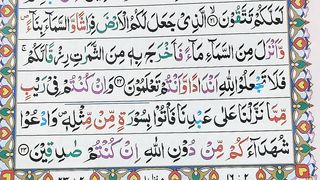 لَعَلَّكُمْ تَتَّقُوْنَ ﴿٢١﴾ الَّذِيْ جَعَلَ لَكُمُ الْاَرْضَ فِرَاشًا وَّالسَّمَآءَ بِنَآءً
وَّاَنْزَلَ مِنَ السَّمَآءِ مَآءً فَاَخْرَجَ بِهٖ مِنَ الثَّمَرٰتِ رِزْقًا لَّكُمْ
فَلَا تَجْعَلُوْا لِلّٰهِ اَنْدَادًا وَّاَنْتُمْ تَعْلَمُوْنَ ﴿٢٢﴾ وَاِنْ كُنْتُمْ فِيْ رَيْبٍ
مِّمَّا نَزَّلْنَا عَلٰى عَبْدِنَا فَاْتُوْا بِسُوْرَةٍ مِّنْ مِّثْلِهٖ وَادْعُوْا
شُهَدَآءَكُمْ مِّنْ دُوْنِ اللّٰهِ اِنْ كُنْتُمْ صٰدِقِيْنَ ﴿٢٣﴾